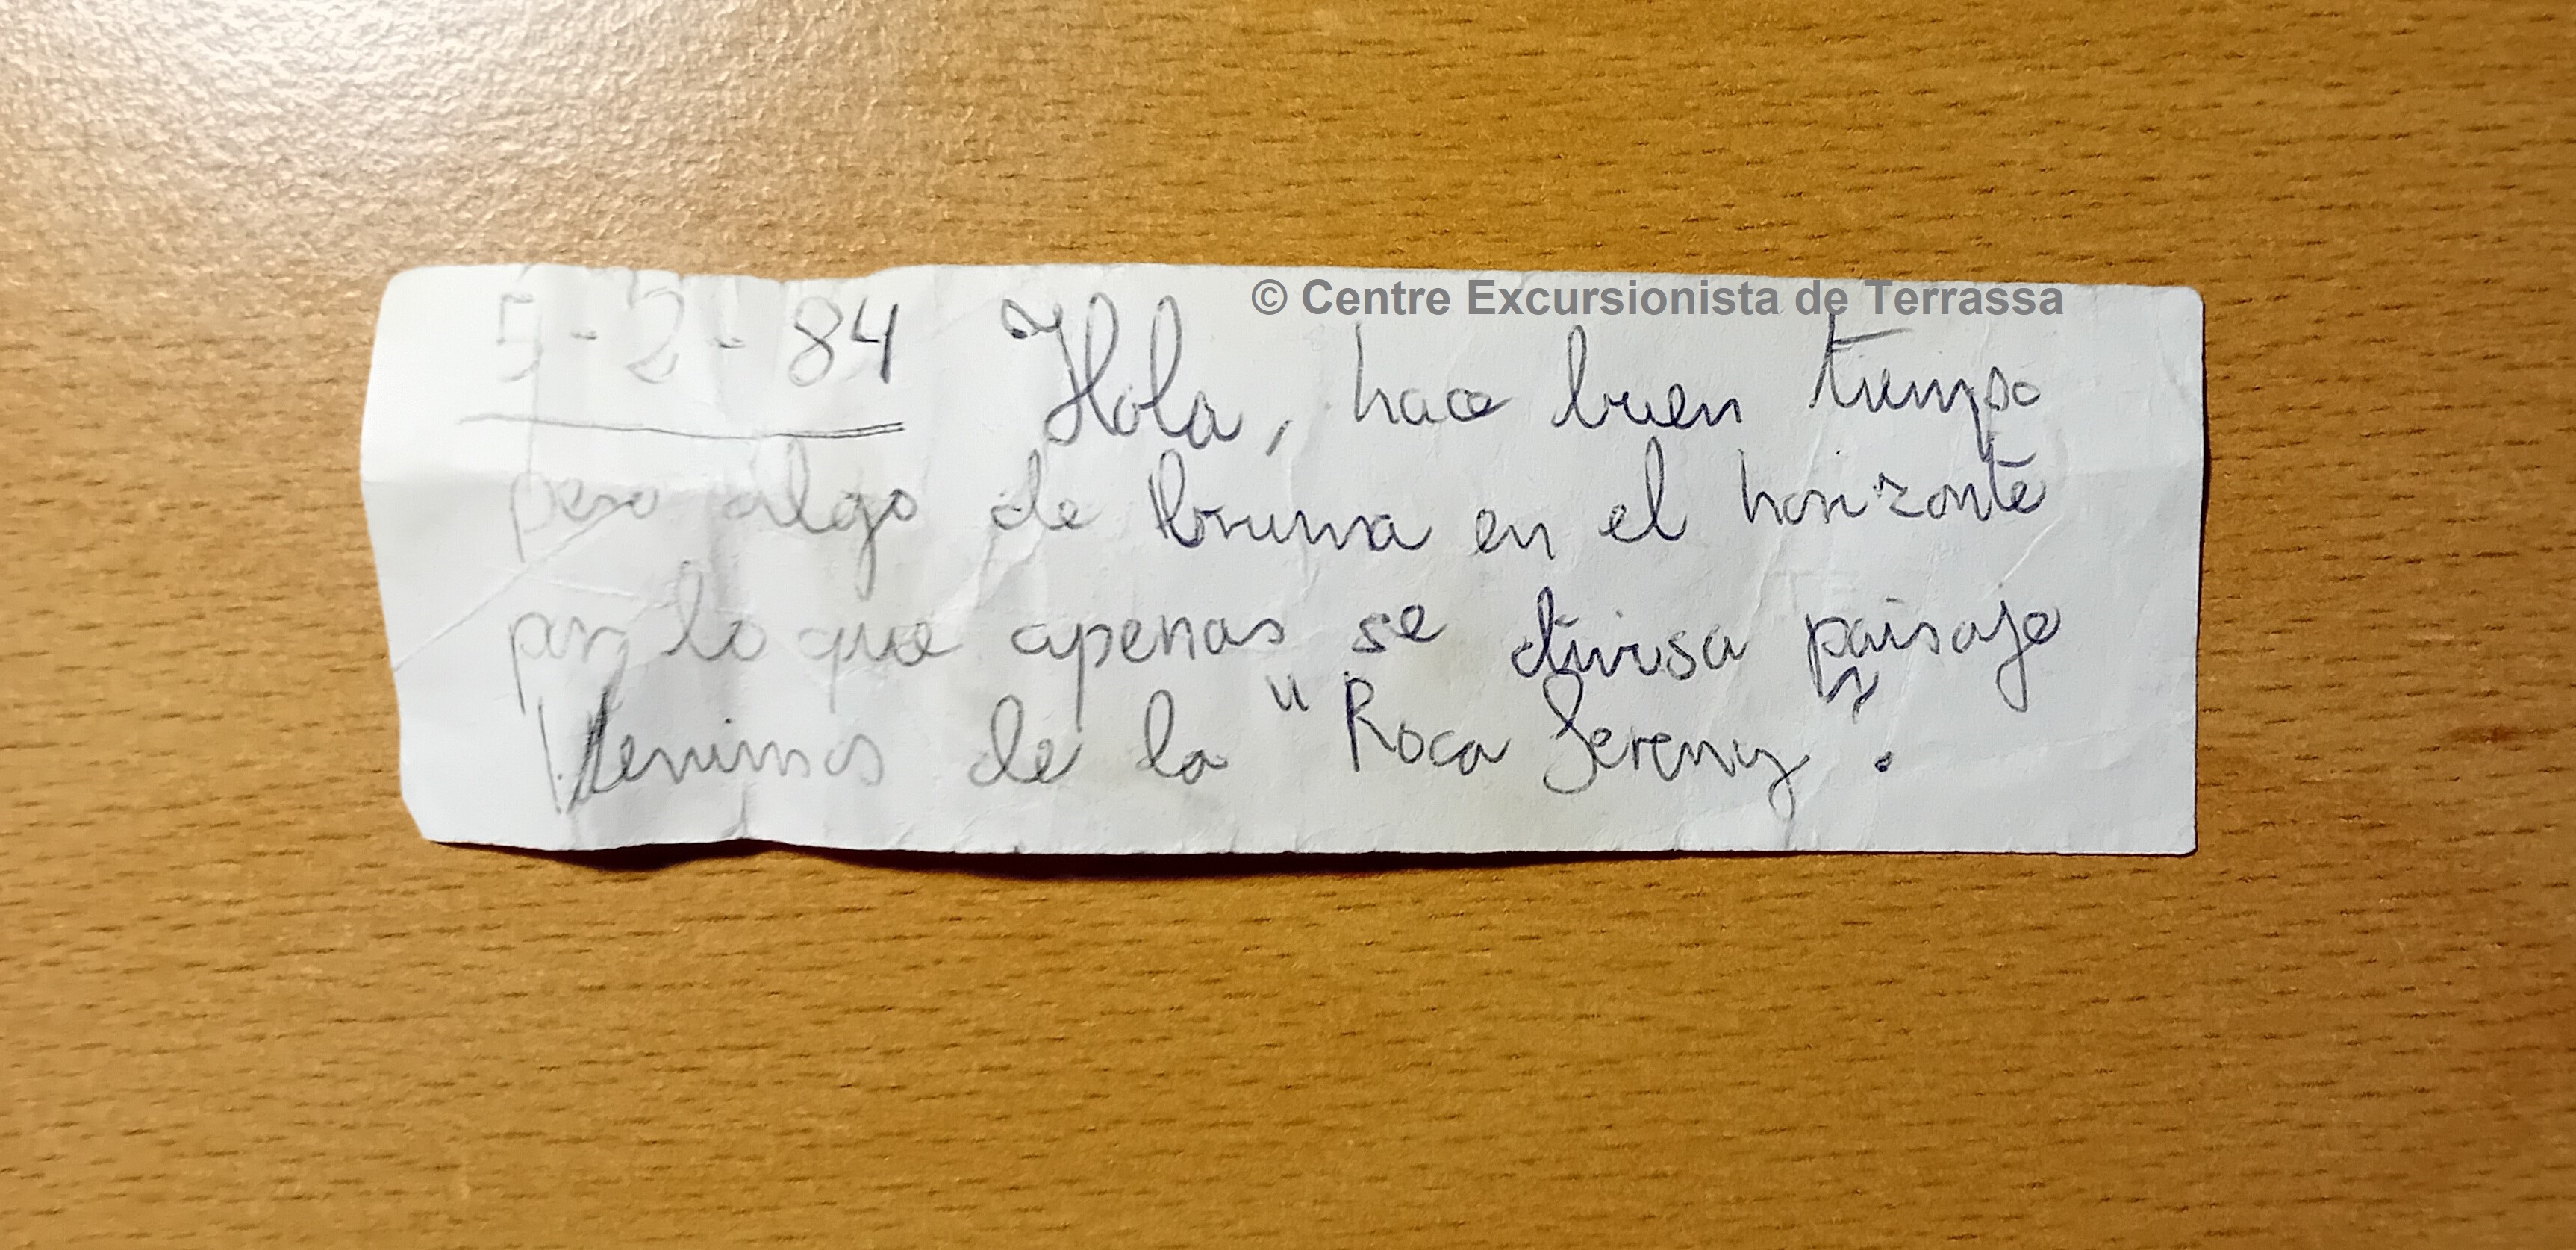 © Centre Excursionista de Terrassa
5-2-84 Hola, hace buen tiempo
pero algo de bruma en el horizonte
por lo que apenas se divisa paisaje
Venimos de la "Roca Sereny".